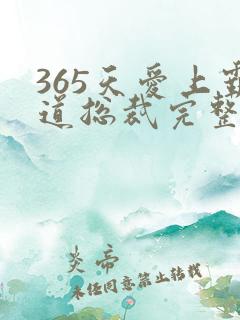 365天爱上霸
道总裁完整
炎帝
未经同意禁止转载